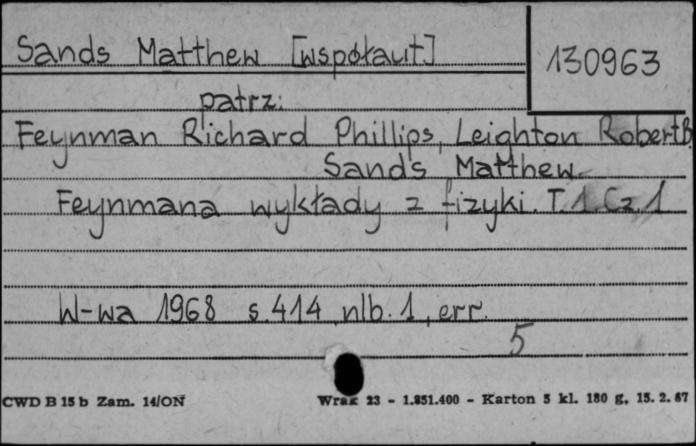 Sands Matthew [współaut] 130963
patrz:
Feynman Richard Phillips, Leighton Robert B.
Sands Matthew
Feynmana wykłady z fizyki. T. 1. Cz. 1
W-wa 1968 s. 414, nlb. 1, err.
5
CWD B 15 b Zam. 14/ON Wrzk 23 - 1.851.400 - Karton 5 kl. 180 g, 15. 2. 67